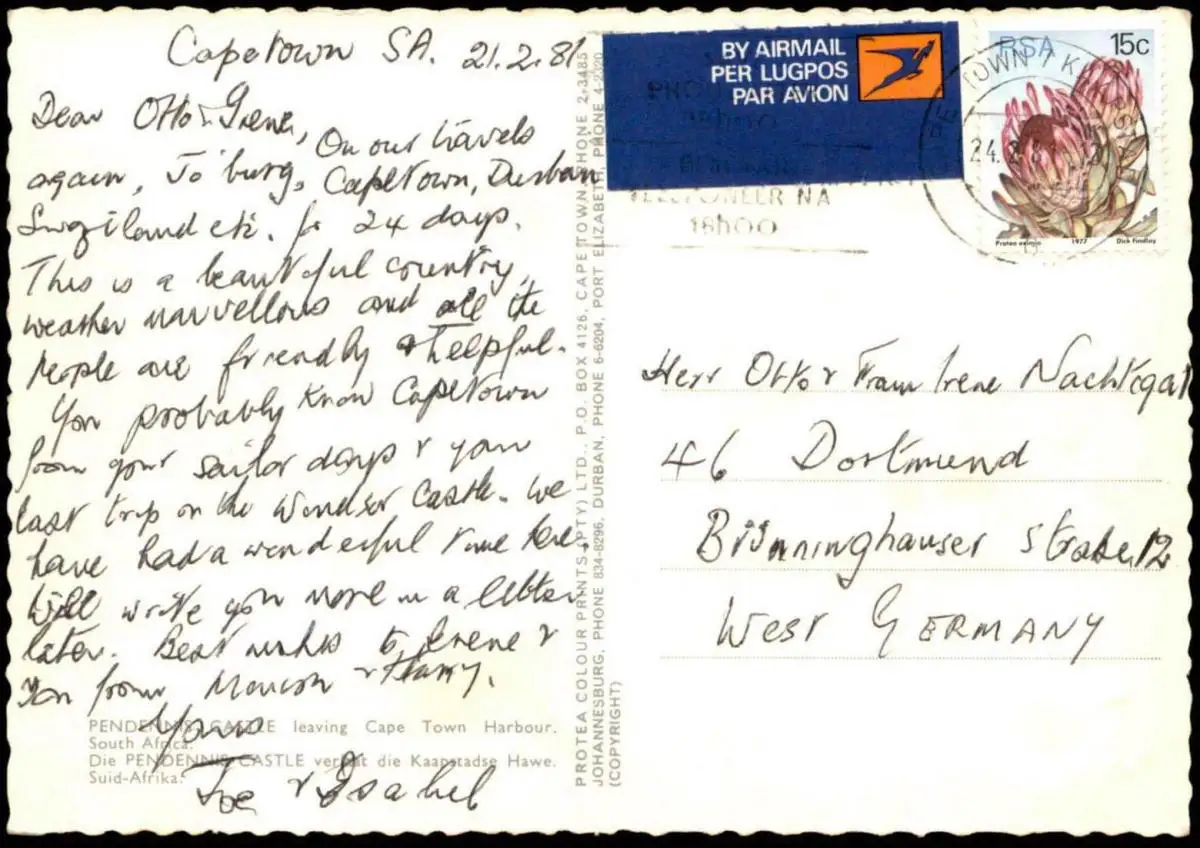 Capetown SA. 21.2.81
Dear Otto & Irene,
On our travels
again, Jo'burg, Capetown, Durban
Swaziland etc. for 24 days.
This is a beautiful country,
weather marvellous and all the
people are friendly & helpful.
You probably know Capetown
from your sailor days & your
last trip on the Windsor Castle. We
have had a wonderful time here.
Will write you more in a letter
later. Best wishes to Irene &
You from Marion & Harry.
Yours
Joe & Isabel
PENDENNIS CASTLE leaving Cape Town Harbour.
South Africa.
Die PENDENNIS CASTLE verlaat die Kaapstadse Hawe.
Suid-Afrika.
PROTEA COLOUR PRINTS (PTY) LTD., P.O. BOX 4126, CAPE TOWN, PHONE 2-3485
JOHANNESBURG, PHONE 834-8296, DURBAN, PHONE 6-6204, PORT ELIZABETH, PHONE 4-2320
(COPYRIGHT)
BY AIRMAIL
PER LUGPOS
PAR AVION
TELEFONEER NA
18h00
RSA 15c
TOWN
24.2.8
Protea eximia 1977 Dick Findlay
Herr Otto & Frau Irene Nachtigal
46 Dortmund
Brünninghauser Straße 12
West GERMANY